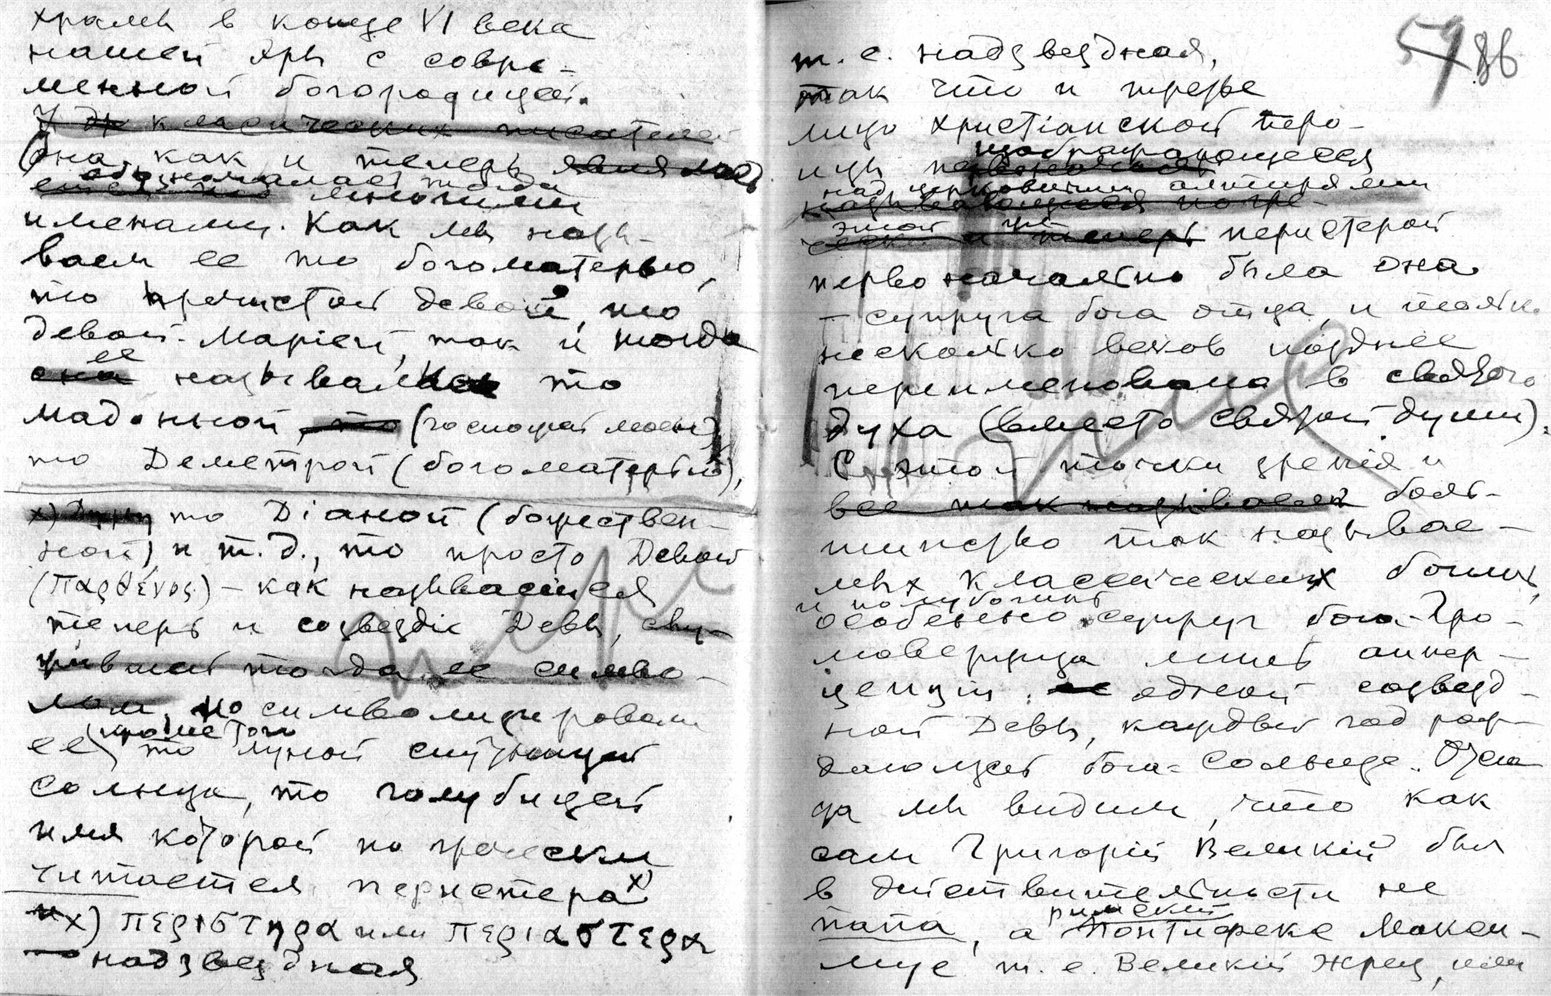 храмы в конце VI века
нашей эры с совре-
менной богородицей.
У др классических писателе
Она, как и теперь являлась
обозначалась тогда
многими
именами. Как мы назы-
ваем ее то богоматерью,
то пречистой девой, то
девой-Маріей, так и тогда
ее
она называли то
мадонной, то (госпожей моей)
то Деметрой (богоматерью),
то Діаной (божествен-
ной) и т.д., то просто Девой
(Παρθένος) – как называется
теперь и созвездіе Девы,
тогда ее симво-
лом, но символизировали
кроме того
ее то луной спутницей
солнца, то голубицей
имя которой по гречески
читается перистера х)
х) περιστηρα или περιαστερα
надзвездная
59 86
т. е. надзвездная,
так что и третье
лицо христіанской Тро-
ицы изображающееся
над церковными алтарями
называющееся по гре-
этой
чески и теперь перистерой
первоначально была она
– супруга бога отца, и только
несколько веков позднее
переименована в святого
духа (вместо святой души).
С этой точки зрения и
все так называемые боль-
шинство так называе-
мых классических богинь,
и полубогинь
особенно супруг бога-Гро-
мовержца лишь аппер-
цепции одной созвезд-
ной Девы, каждый год рож-
дающей бога-Солнце. Отсю-
да мы видим, что как
сам Григорій Великій был
в действительности не
римский
папа, а Понтифекс Макси-
мус т. е. Великій жрец, или